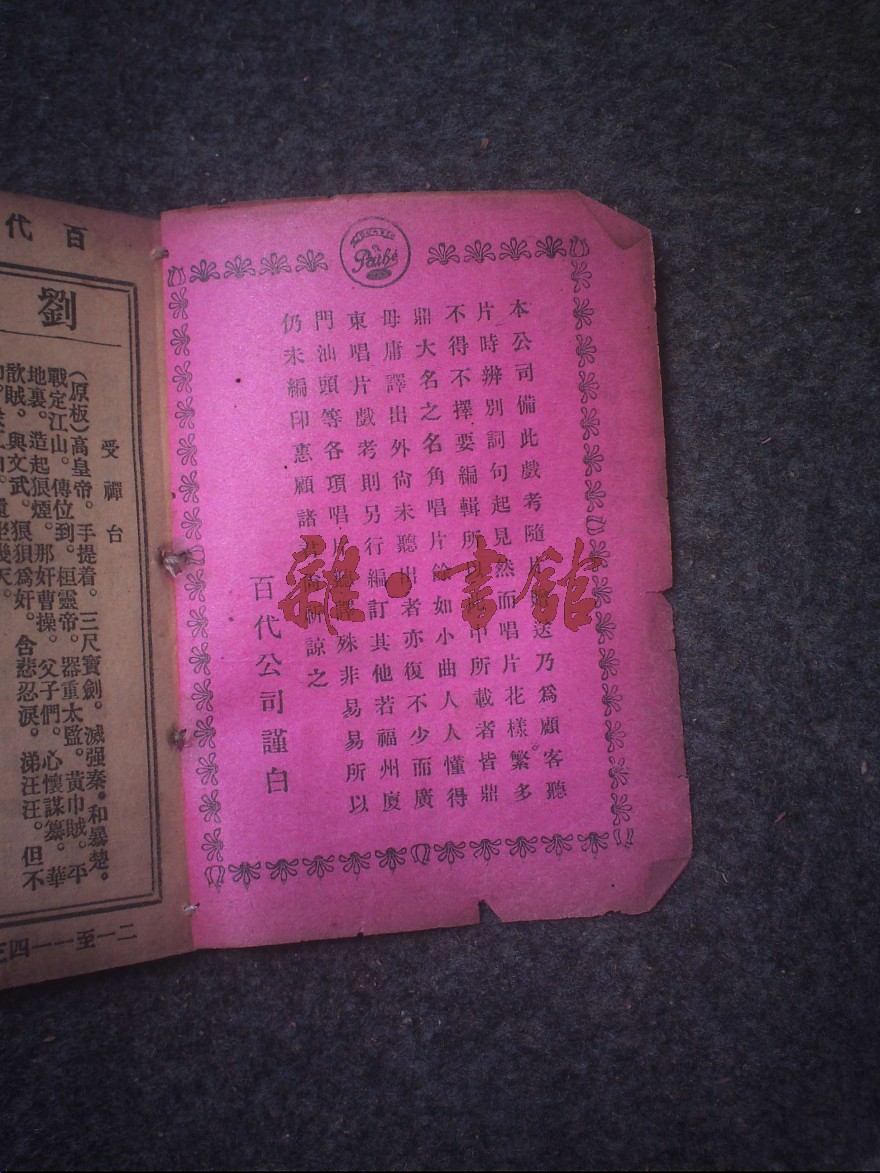 Pathé
本公司備此戲考隨片 送乃爲顧客聽
片時辨別詞句起見然而唱片花樣繁多
不得不擇要編輯所 印所載者皆鼎
鼎大名之名角唱片餘如小曲人人懂得
毋庸譯出外尙未聽出者亦復不少而廣
東唱片戲考則另行編訂其他若福州廈
門汕頭等各項唱片 殊非易易所以
仍未編印惠顧諸君尙祈諒之
百代公司謹白
雜·書館
百代
劉
受禪台
(原板)高皇帝。手提着。三尺寶劍。滅强秦。和暴楚。平
戰定江山。傳位到。桓靈帝。器重太監。黃巾賊。華
地裏。造起狼煙。那奸曹操。父子們。心懷謀纂。
歆賊。與文武。狠狽爲奸。含悲忍淚。涕汪汪。但不
二一至一一四三